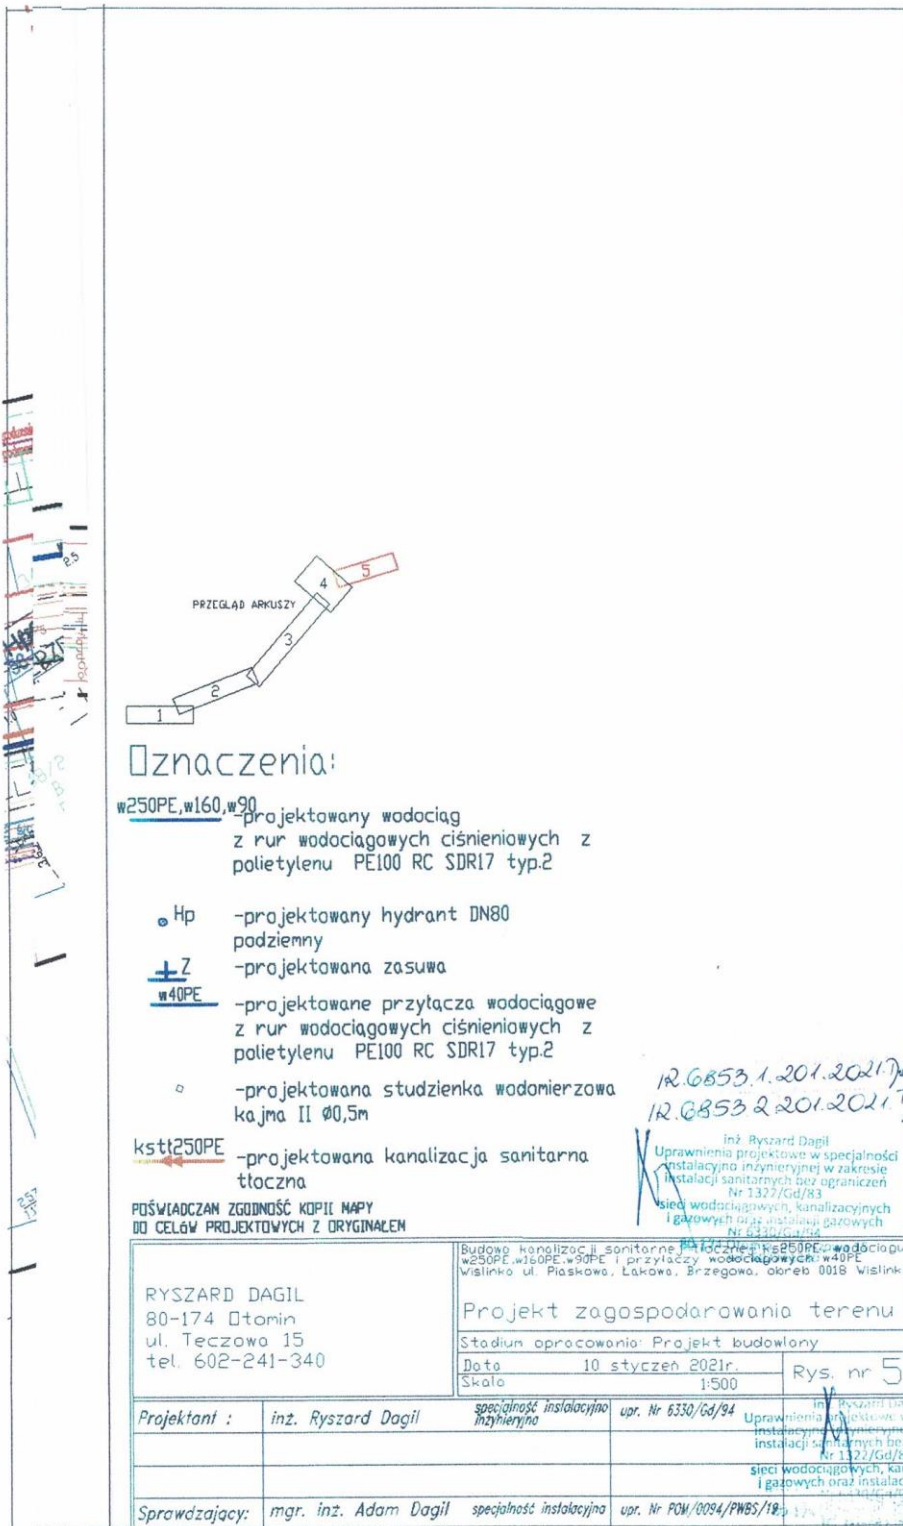 PRZEGLĄD ARKUSZY
1
2
3
4
5
Oznaczenia:
w250PE,w160,w90 -projektowany wodociąg
z rur wodociągowych ciśnieniowych z
polietylenu PE100 RC SDR17 typ.2
Hp -projektowany hydrant DN80
podziemny
Z -projektowana zasuwa
w40PE -projektowane przyłącza wodociągowe
z rur wodociągowych ciśnieniowych z
polietylenu PE100 RC SDR17 typ.2
-projektowana studzienka wodomierzowa
kajma II Ø0,5m
kstł250PE -projektowana kanalizacja sanitarna
tłoczna
POŚWIADCZAM ZGODNOŚĆ KOPII MAPY
DO CELÓW PROJEKTOWYCH Z ORYGINAŁEM
12.6853.1.201.2021
12.6853 2 201.2021
inż. Ryszard Dagil
Uprawnienia projektowe w specjalności
instalacyjno inżynieryjnej w zakresie
instalacji sanitarnych bez ograniczeń
Nr 1327/Gd/83
sieci wodociągowych, kanalizacyjnych
i gazowych oraz instalacji gazowych
Nr 6330/Gd/94
RYSZARD DAGIL
80-174 Otomin
ul. Tęczowa 15
tel. 602-241-340
Budowa kanalizacji sanitarnej tłocznej ks250PE, wodociągu
w250PE,w160PE,w90PE i przyłączy wodociągowych w40PE
Wiślinka ul. Piaskowa, Łąkowa, Brzegowa, obręb 0018 Wiślink
Projekt zagospodarowania terenu
Stadium opracowania: Projekt budowlany
Data 10 styczeń 2021r.
Skala 1:500
Rys. nr 5
Projektant : inż. Ryszard Dagil specjalność instalacyjno inżynieryjna upr. Nr 6330/Gd/94
Sprawdzający: mgr. inż. Adam Dagil specjalność instalacyjna upr. Nr POM/0094/PWBS/18